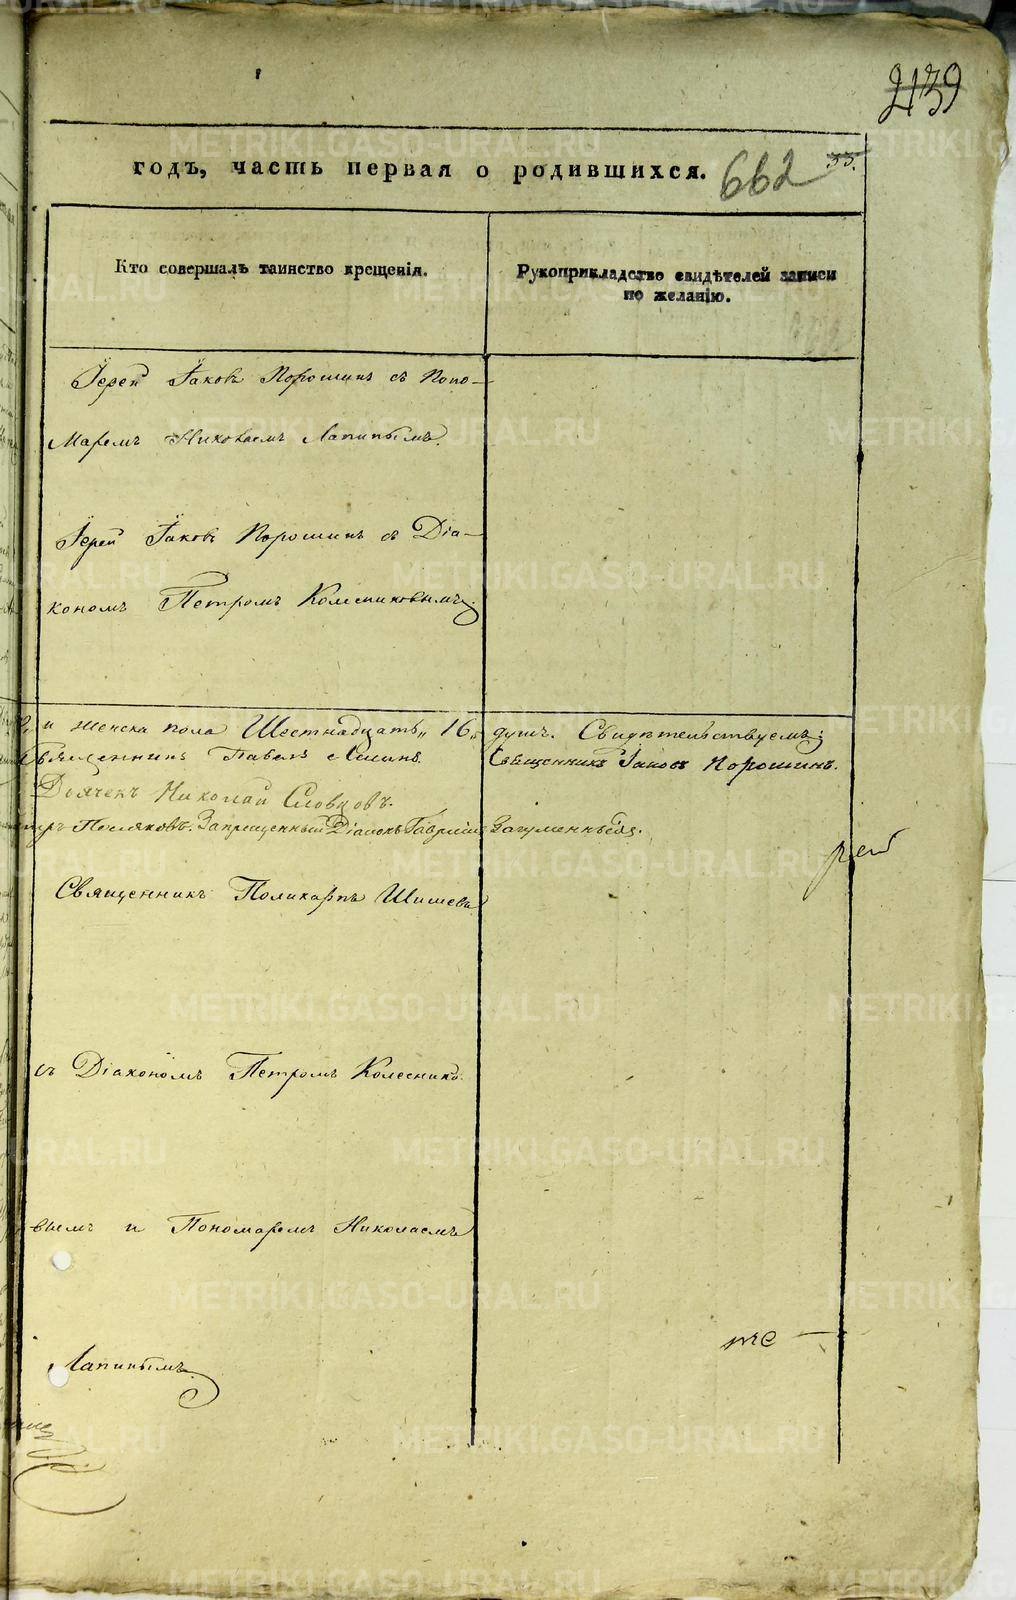 239
годъ, часть первая о родившихся. 662 33.
Кто совершалъ таинство крещенія.
Рукоприкладство свидѣтелей записи
по желанію.
Іерей Іаковъ Порошинъ съ Поно-
маремъ Николаемъ Лапинымъ.
Іерей Іаковъ Порошинъ съ Діа-
кономъ Петромъ Колесниковымъ.
и женска пола Шестнадцать „16„ душъ. Свидѣтельствуемъ:
Священникъ Павелъ Священникъ Іаковъ Порошинъ.
Дьячекъ Николай Словцовъ.
Посляковъ. Запрещенный Діаконъ Гавріилъ
Священникъ Поликарпъ Шишевъ
съ Діакономъ Петромъ Колеснико-
вымъ и Пономаремъ Николаемъ
Лапинымъ.
METRIKI.GASO-URAL.RU